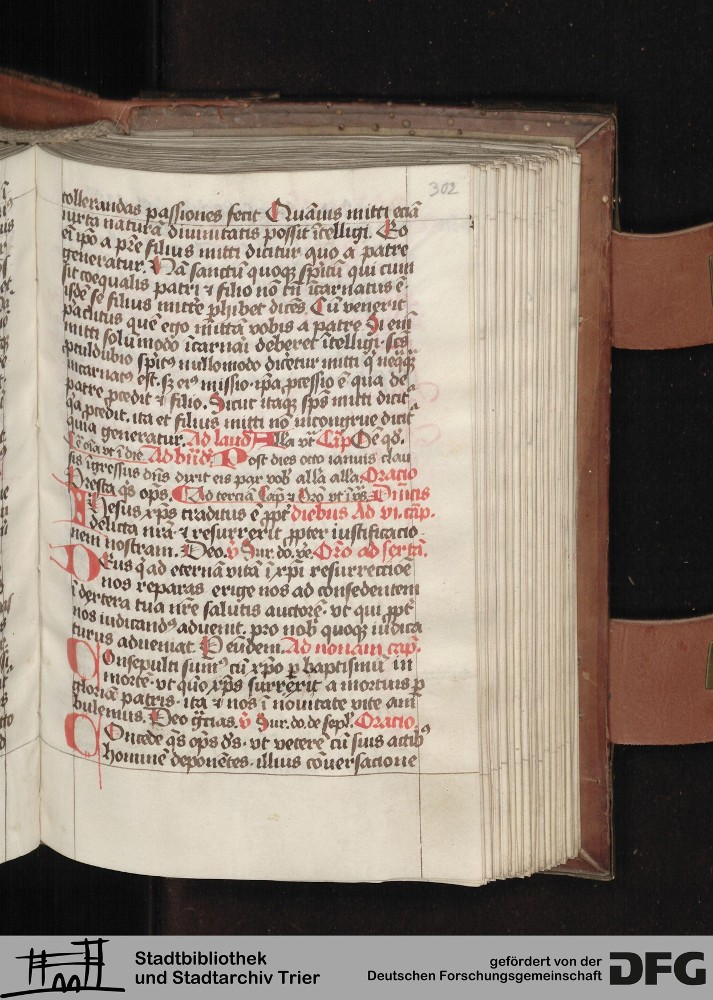 302
tollerandas passiones fecit Quāuis mitti eciā
iuxta naturā diuinitatis possit ītelligi. Eo
eī ipo a pr̄e filius mitti dicitur quo a patre
generatur. Nā sanctū quoqꝫ spītū qui cum
sit coequalis patri ⁊ filio nō tn̄ īcarnatus ē
isdē se filius mitte᷑ phibet dicēs Cū venerit
paclitus quē ego mittā vobis a patre Si em̄
mitti solūmodo īcarnai deberet ītelligi scs
ꝓculdubio spitꝰ nullomodo dicetur mitti q̇ neq̄qꝫ
incarnatꝰ est. sꝫ eiꝰ missio ipa ꝓcessio ē qua de
patre ꝓcedit ⁊ filio. Sicut itaqꝫ sps mitti dicit᷑
q̇a ꝓcedit. ita et filius mitti nō incongrue dicit᷑
quia generatur. Ad laud Alla vt Cap Bn̄ qd.
oīa vt ī die Ad bn̄d Post dies octo ianuis clau
sis īgressus dn̄s dixit eis pax vob alla alla. Oratio
Presta q̄s op̄s. Ad terciā Cap ⁊ Oro vt ī ps̄ Diuicis
Ihesus xp̄s traditus ē ꝓpt᷑ diebus Ad vi. cap.
delicta nr̄a ⁊ resurrexit ꝓpter iustificacio
nem nostram. Deo. v̄ Sur. do. ve. Orō ad sextā.
Deus q̇ ad eternā vitā ī xp̄i resurrectiōe
nos reparas erige nos ad consedentem
ī dextera tua nr̄e salutis auctorē vt qui ꝓpt᷑
nos iudicandꝰ aduenit. pro nob quoqꝫ iudica
turus adueniat. P eūdem. Ad nonam cap.
Consepulti sumꝰ cū xp̄o ꝑ baptismū in
morte vt quō xp̄s surrexit a mortuis ꝑ
gloriā patris ita ⁊ nos ī nouitate vite am
bulemus. Deo gr̄cias. v̄ Sur. do. de sepl. Oratio.
Concede q̄s op̄s ds̄ vt veterē cū suis actibꝰ
hominē deponētes illius cōuersacione
Stadtbibliothek
und Stadtarchiv Trier
gefördert von der
Deutschen Forschungsgemeinschaft
DFG